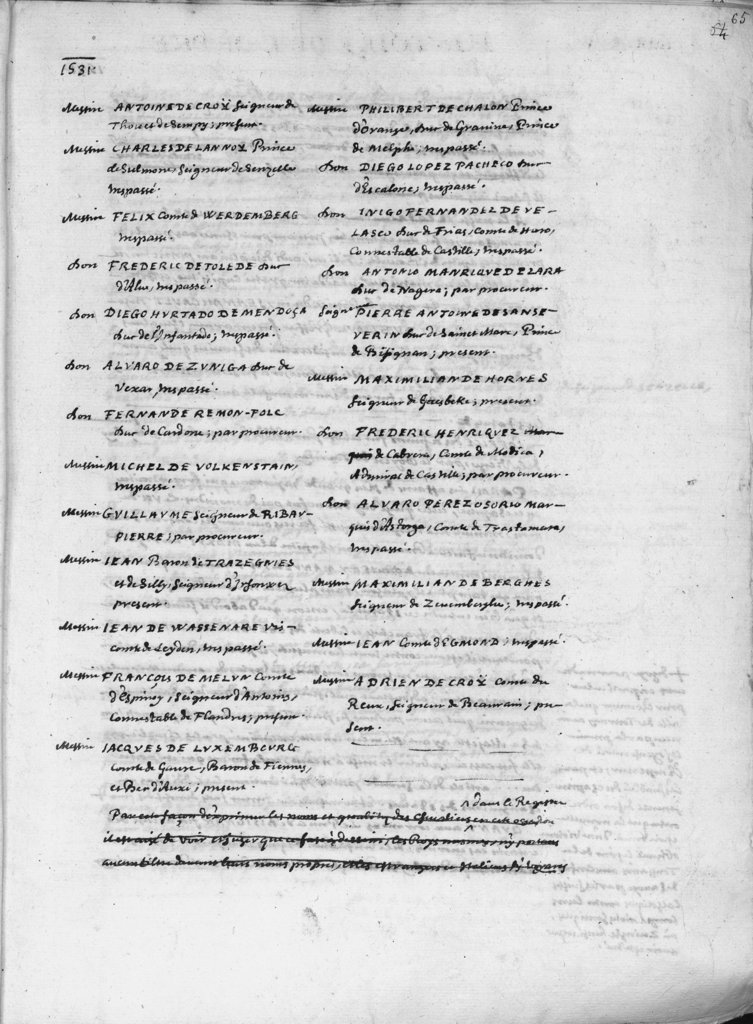 65
64
1531
Messire ANTOINE DE CROŸ Seigneur de
Thou et de Sempy; present.
Messire CHARLES DE LANNOY Prince
de Sulmone, Seigneur de Senzelle
trespassé.
Messire FELIX Comte de WERDEMBERG
trespassé.
Don FREDERIC DE TOLEDE Duc
d'Alve, trespassé.
Don DIEGO HVRTADO DE MENDOÇA
Duc de l'Infantado; trespassé.
Don ALVARO DE ZVNIGA Duc de
Vexar, trespassé.
Don FERNANDE REMON-FOLC
Duc de Cardone; par procureur.
Messire MICHEL DE VOLKENSTAIN,
trespassé.
Messire GVILLAVME Seigneur de RIBAV-
PIERRE; par procureur.
Messire IEAN Baron de TRAZEGNIES
et de Silly, Seigneur d'
present.
Messire IEAN DE WASSENARE Vis-
comte de Leyden, trespassé.
Messire FRANÇOIS DE MELVN Comte
d'Espinoy, Seigneur d'Antoing,
Connestable de Flandres; present.
Messire IACQVES DE LVXEMBOVRG
Comte de Gavre, Baron de Fiennes,
et Ber d'Auxi; present.
Messire PHILIBERT DE CHALON Prince
d'Orange, Duc de Gravine, Prince
de Melphe; trespassé.
Don DIEGO LOPEZ PACHECO Duc
d'Escalone; trespassé.
Don INIGO FERNANDEZ DE VE-
LASCO Duc de Frias, Comte de Haro,
Connestable de Castille; trespassé.
Don ANTONIO MANRIQVE DE LARA
Duc de Nagera; par procureur.
Seigneur PIERRE ANTOINE DE SANSE-
VERIN Duc de Sainct Marc, Prince
de Bisignan; present.
Messire MAXIMILIAN DE HORNES
Seigneur de Gaesbeke; present.
Don FREDERIC HENRIQVEZ Mar-
quis de Cabrera, Comte de Modica,
Admiral de Castille; par procureur.
Don ALVARO PEREZ OSORIO Mar-
quis d'Astorga, Comte de Trastamara,
trespassé.
Messire MAXIMILIAN DE BERGHES
Seigneur de Zevemberghe; trespassé.
Messire IEAN Comte d'EGMOND; trespassé.
Messire ADRIEN DE CROŸ Comte du
Reux, Seigneur de Beaurain; pre-
sent.
dans le Registre
Par ceste façon d'exprimer les noms et qualitez des Chevaliers en ceste
il est aisé de voir et juger que ce fust à dessein, les Roys n'y
aucun tiltre devant leurs noms propres, et les estrangers et Italiens